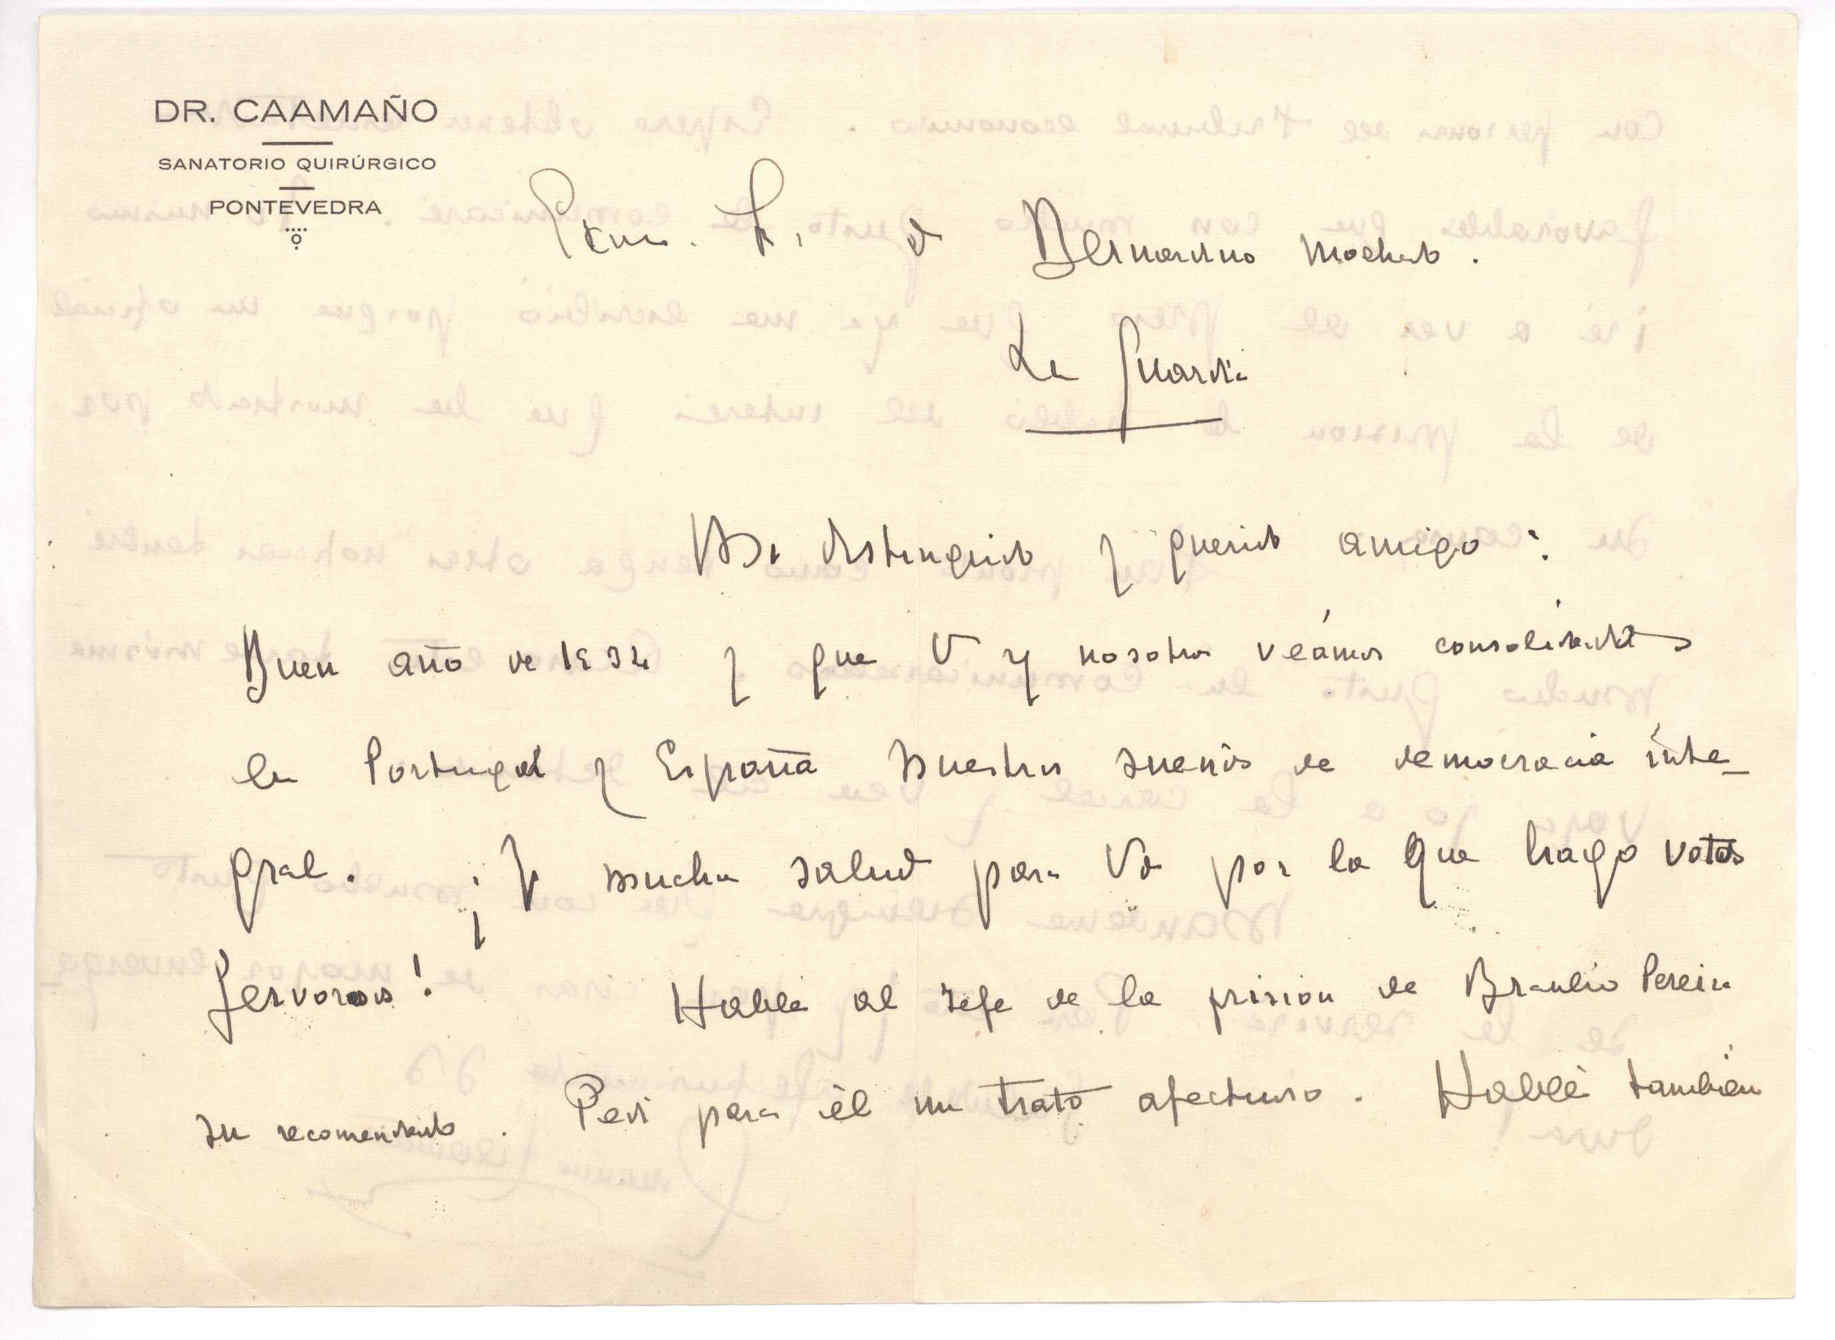 DR. CAAMAÑO
SANATORIO QUIRÚRGICO
PONTEVEDRA
Excmo. Sr. d Bernardino Machado.
La Guardia
Mi distinguido y querido amigo:
Buen año de 1934 y que V y nosotros veámos consolidados
en Portugal y España nuestros sueños de democracia inte-
gral. ¡Y mucha salud para Vd por la que hago votos
fervorosos! Hablé al jefe de la prision de Braulio Pereira
su recomendado. Pedi para él un trato afectuoso. Hablé también